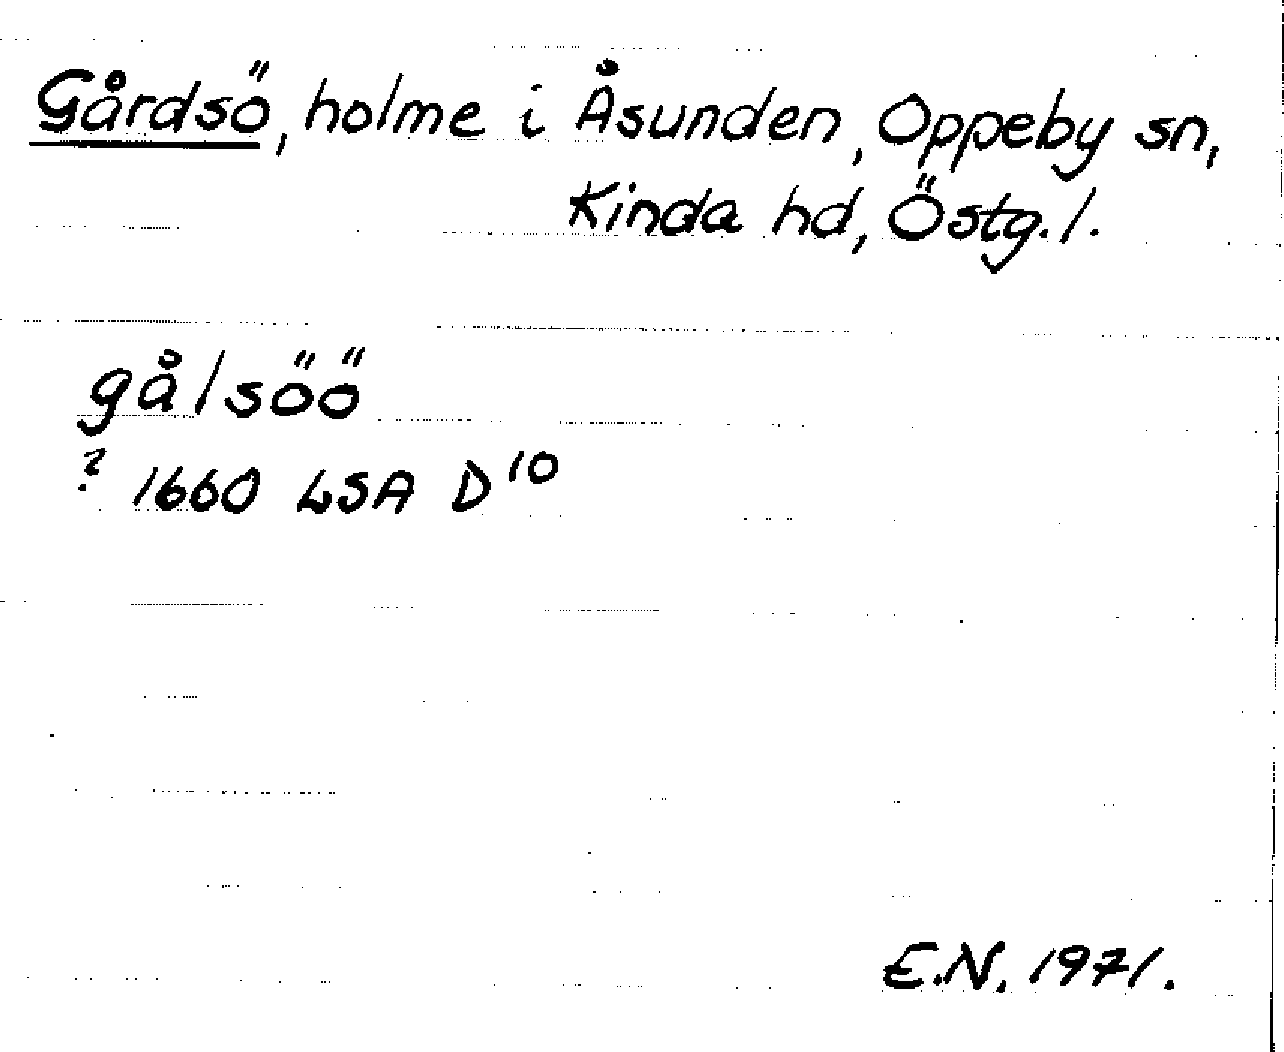 Gårdsö, holme i Åsunden, Oppeby sn,
Kinda hd, Östg.l.
gålsöö
? 1660 LSA D10
E.N. 1971.